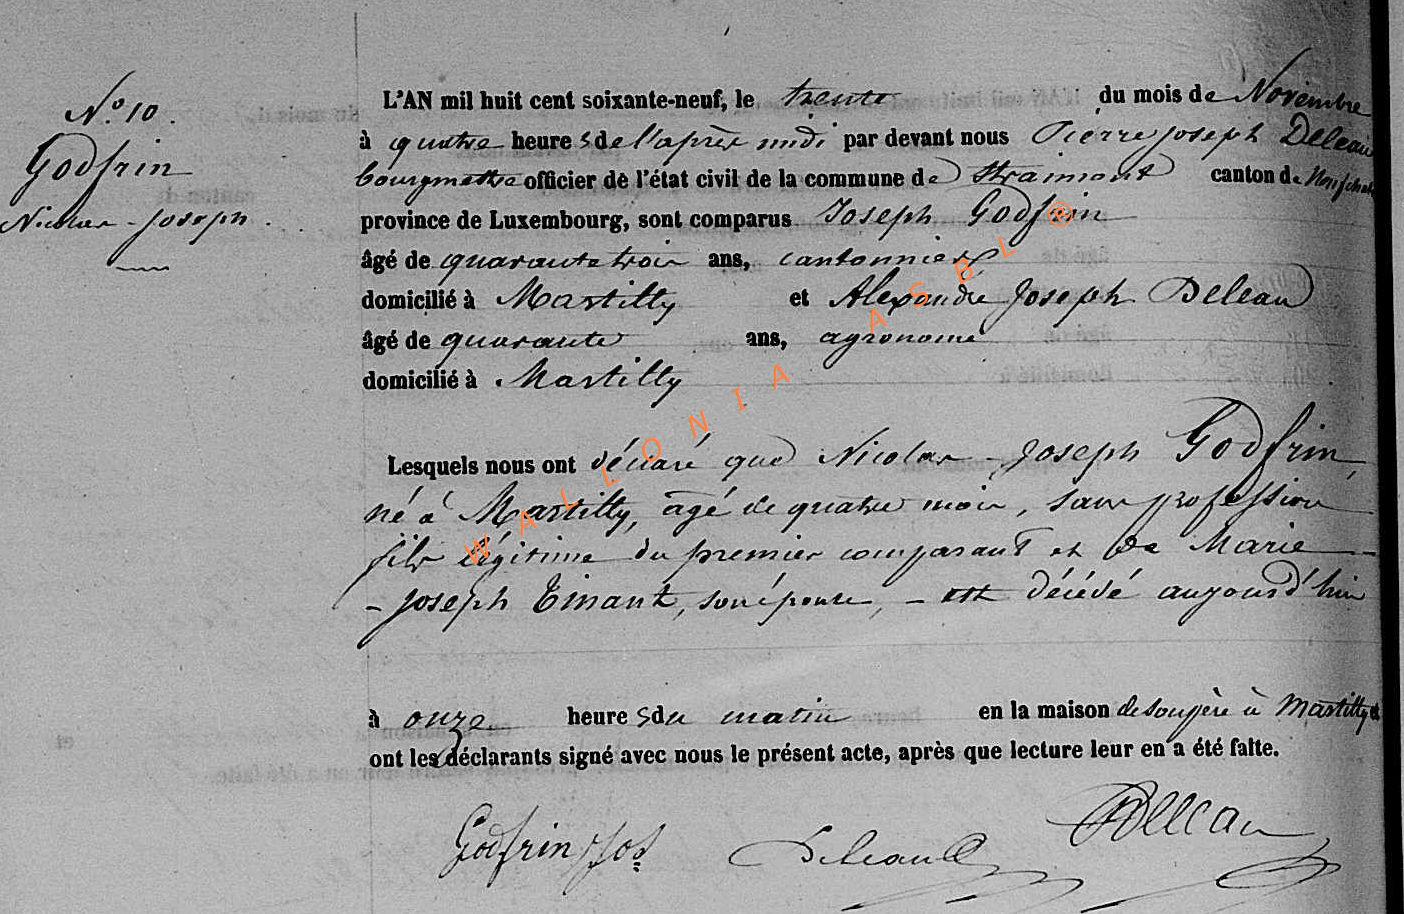 N.º 10.
Godfrin
Nicolas-Joseph.
L'AN mil huit cent soixante-neuf, le trente du mois de Novembre
à quatre heures de l'après midi par devant nous Pierre Joseph Deleau
bourgmestre officier de l'état civil de la commune de Straimont canton de
province de Luxembourg, sont comparus Joseph Godfrin
âgé de quarante trois ans, cantonnier
domicilié à Martilly et Alexandre Joseph Deleau
âgé de quarante ans, agronome
domicilié à Martilly
Lesquels nous ont déclaré que Nicolas-Joseph Godfrin,
né à Martilly, âgé de quatre mois, sans profession
fils légitime du premier comparant et de Marie-
-Joseph Tinant, son épouse, - est décédé aujourd'hui
à onze heures du matin en la maison de son père à Martilly et
ont les déclarants signé avec nous le présent acte, après que lecture leur en a été faite.
Godfrin Jos
Deleau
Deleau
WALLONIA ASBL ®